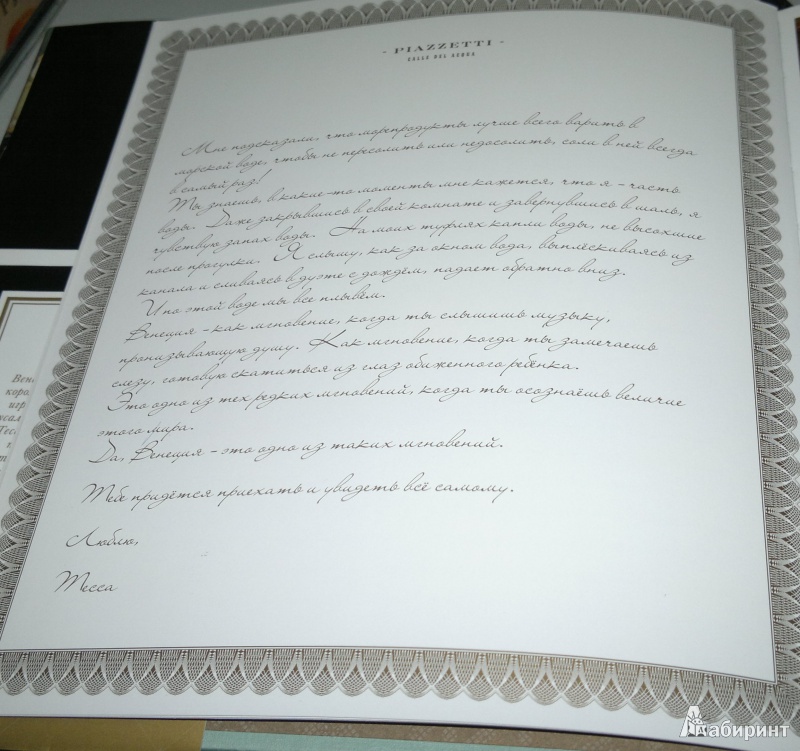 - PIAZZETTI -
CALLE DEL ACQUA
Мне подсказали, что морепродукты лучше всего варить в
морской воде, чтобы не пересолить или недосолить, соли в ней всегда
в самый раз!
Ты знаешь, в какие-то моменты мне кажется, что я - часть
воды. Даже закрывшись в своей комнате и завернувшись в шаль, я
чувствую запах воды. На моих туфлях капли воды, не высохшие
после прогулки. Я слышу, как за окном вода, выплёскиваясь из
канала и сливаясь в дуэте с дождём, падает обратно вниз.
И по этой воде мы все плывём.
Венеция - как мгновение, когда ты слышишь музыку,
пронизывающую душу. Как мгновение, когда ты замечаешь
слезу, готовую скатиться из глаз обиженного ребёнка.
Это одно из тех редких мгновений, когда ты осознаёшь величие
этого мира.
Да, Венеция - это одно из таких мгновений.
Тебе придётся приехать и увидеть всё самому.
Люблю,
Тесса
Вен
коро
игр
Тес
Лабиринт